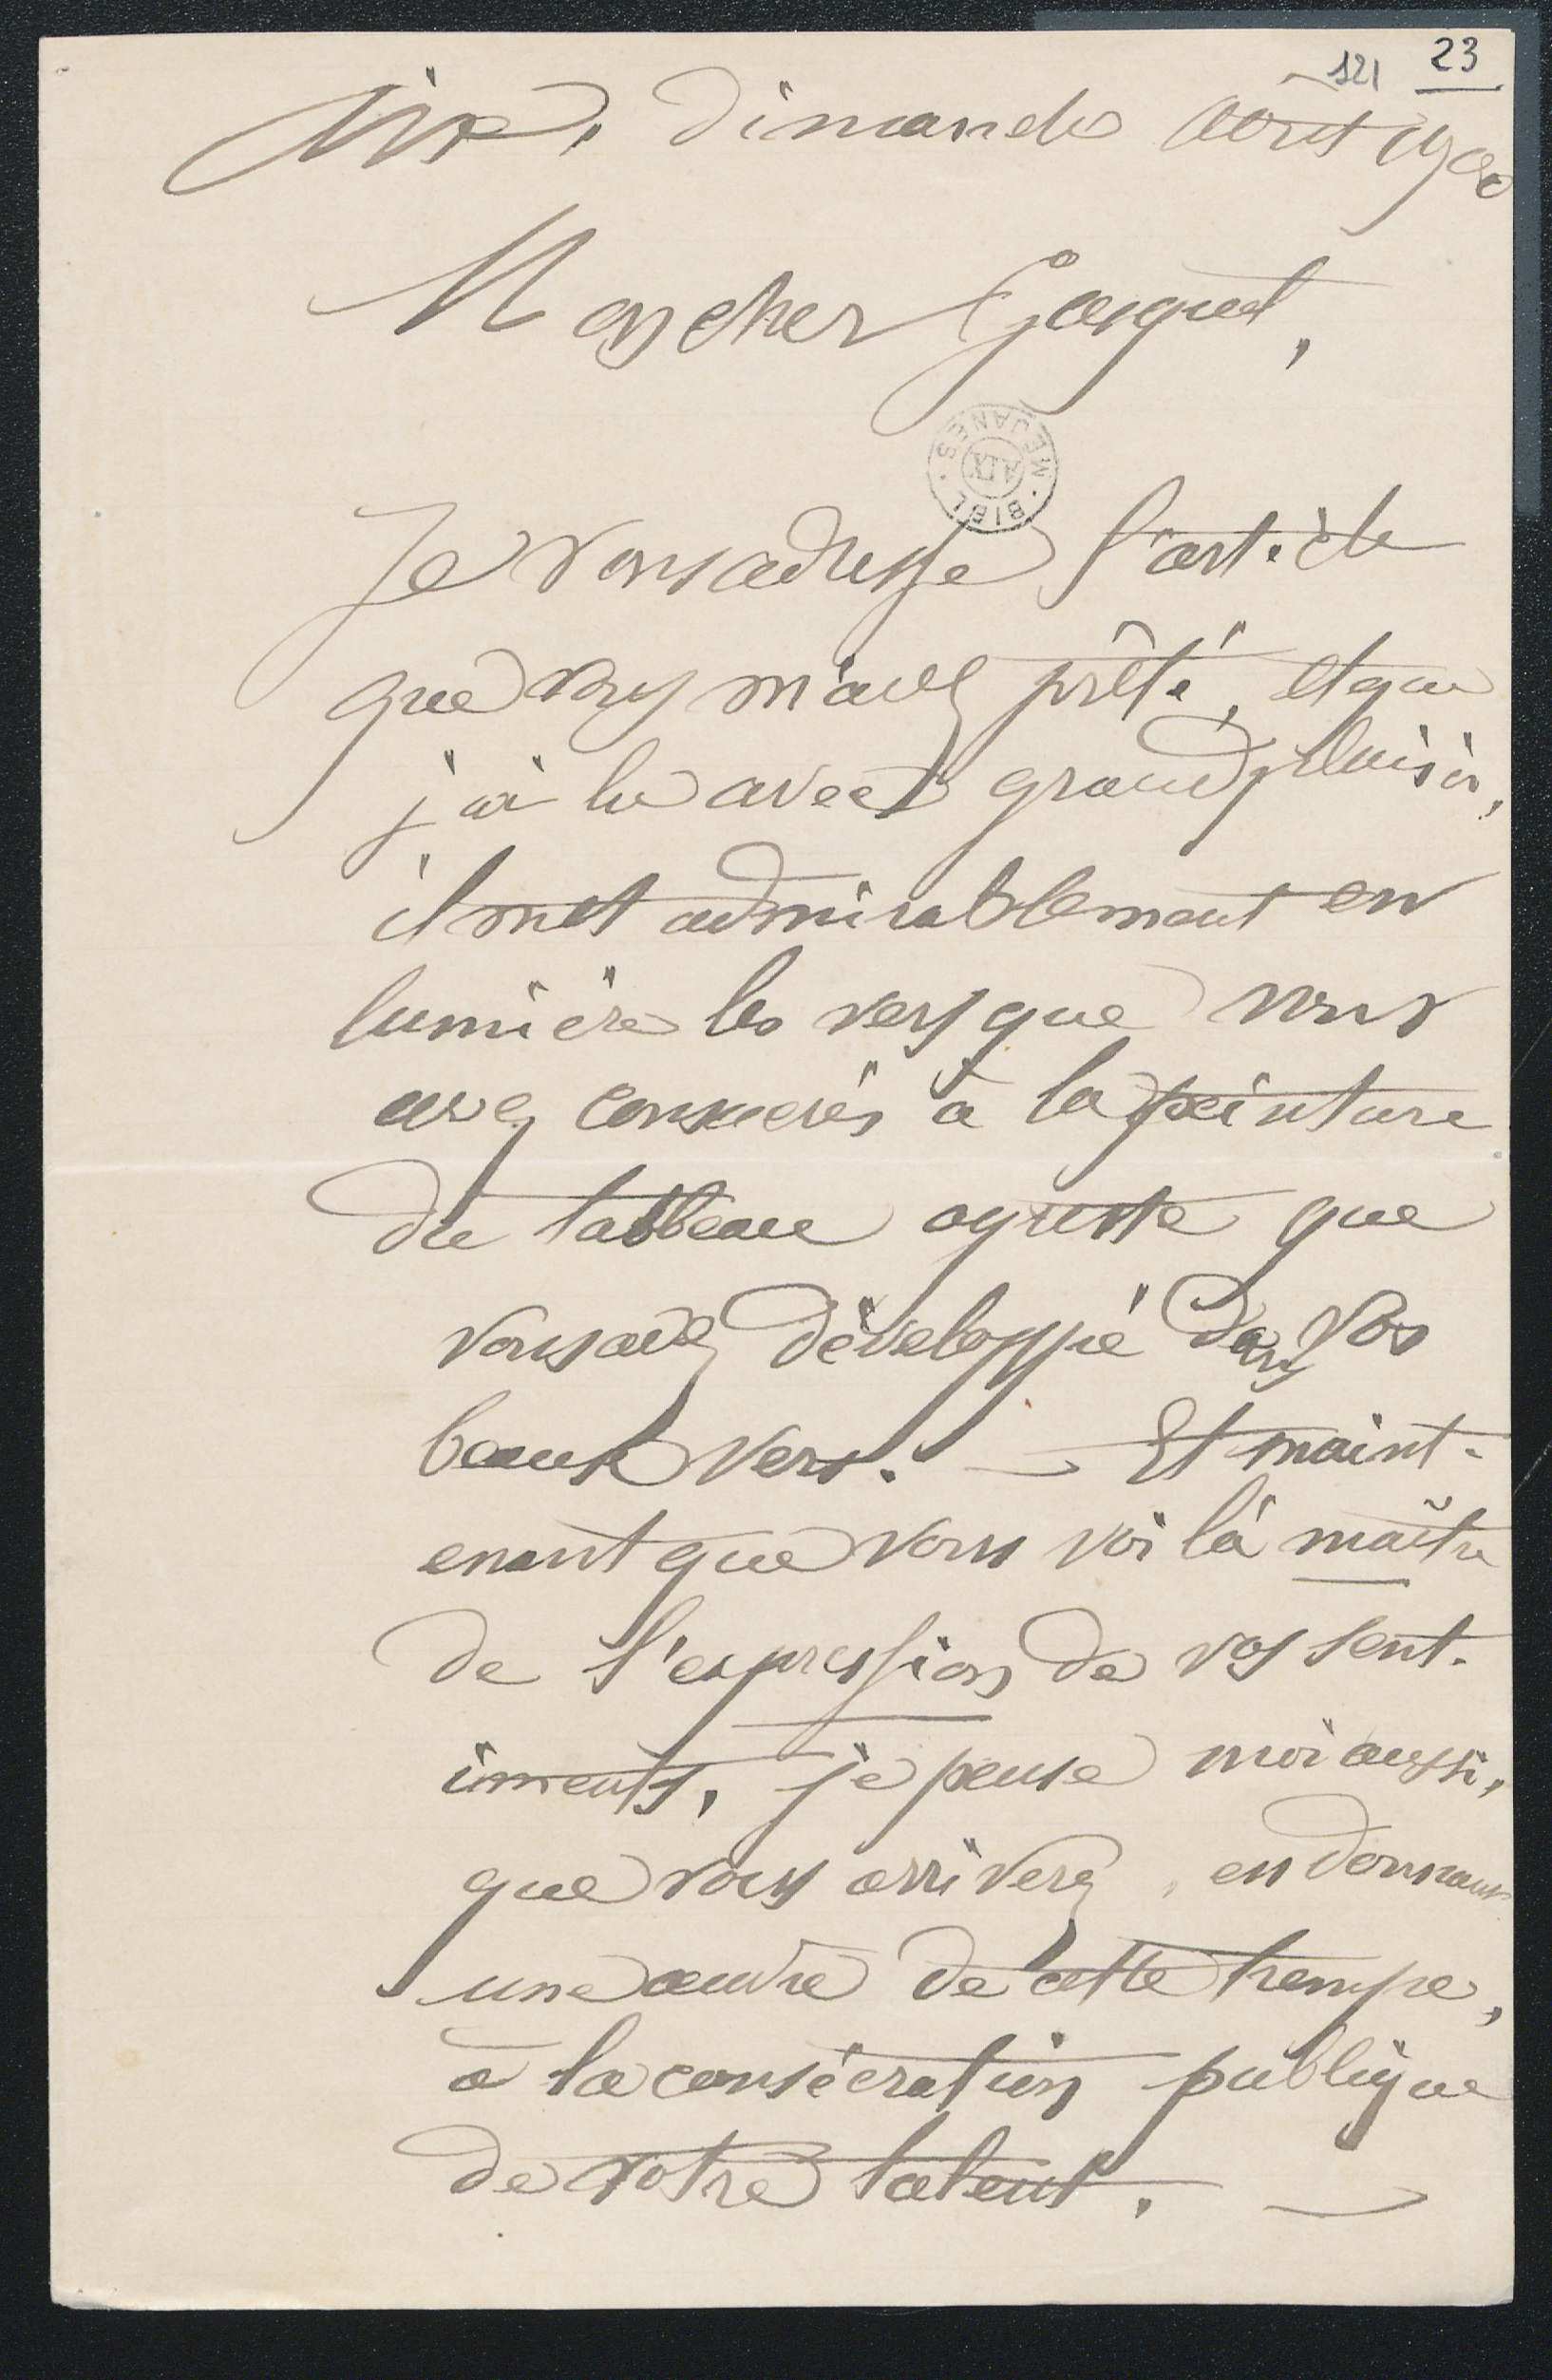 121 23
Aix, dimanche août 1900
Mon cher Gasquet,
BIBL. MEJANES. AIX
Je vous adresse l'article
que vous m'avez prêté, et que
j'ai lu avec grand plaisir,
il met admirablement en
lumière les vers que vous
avez consacrés à la peinture
du tableau agreste que
vous avez développé dans vos
beaux vers. — Et maint-
enant que vous voilà maître
de l'expression de vos sent-
iments, je pense moi aussi,
que vous arriverez, en donnant
une œuvre de cette trempe,
à la consécration publique
de votre talent. —